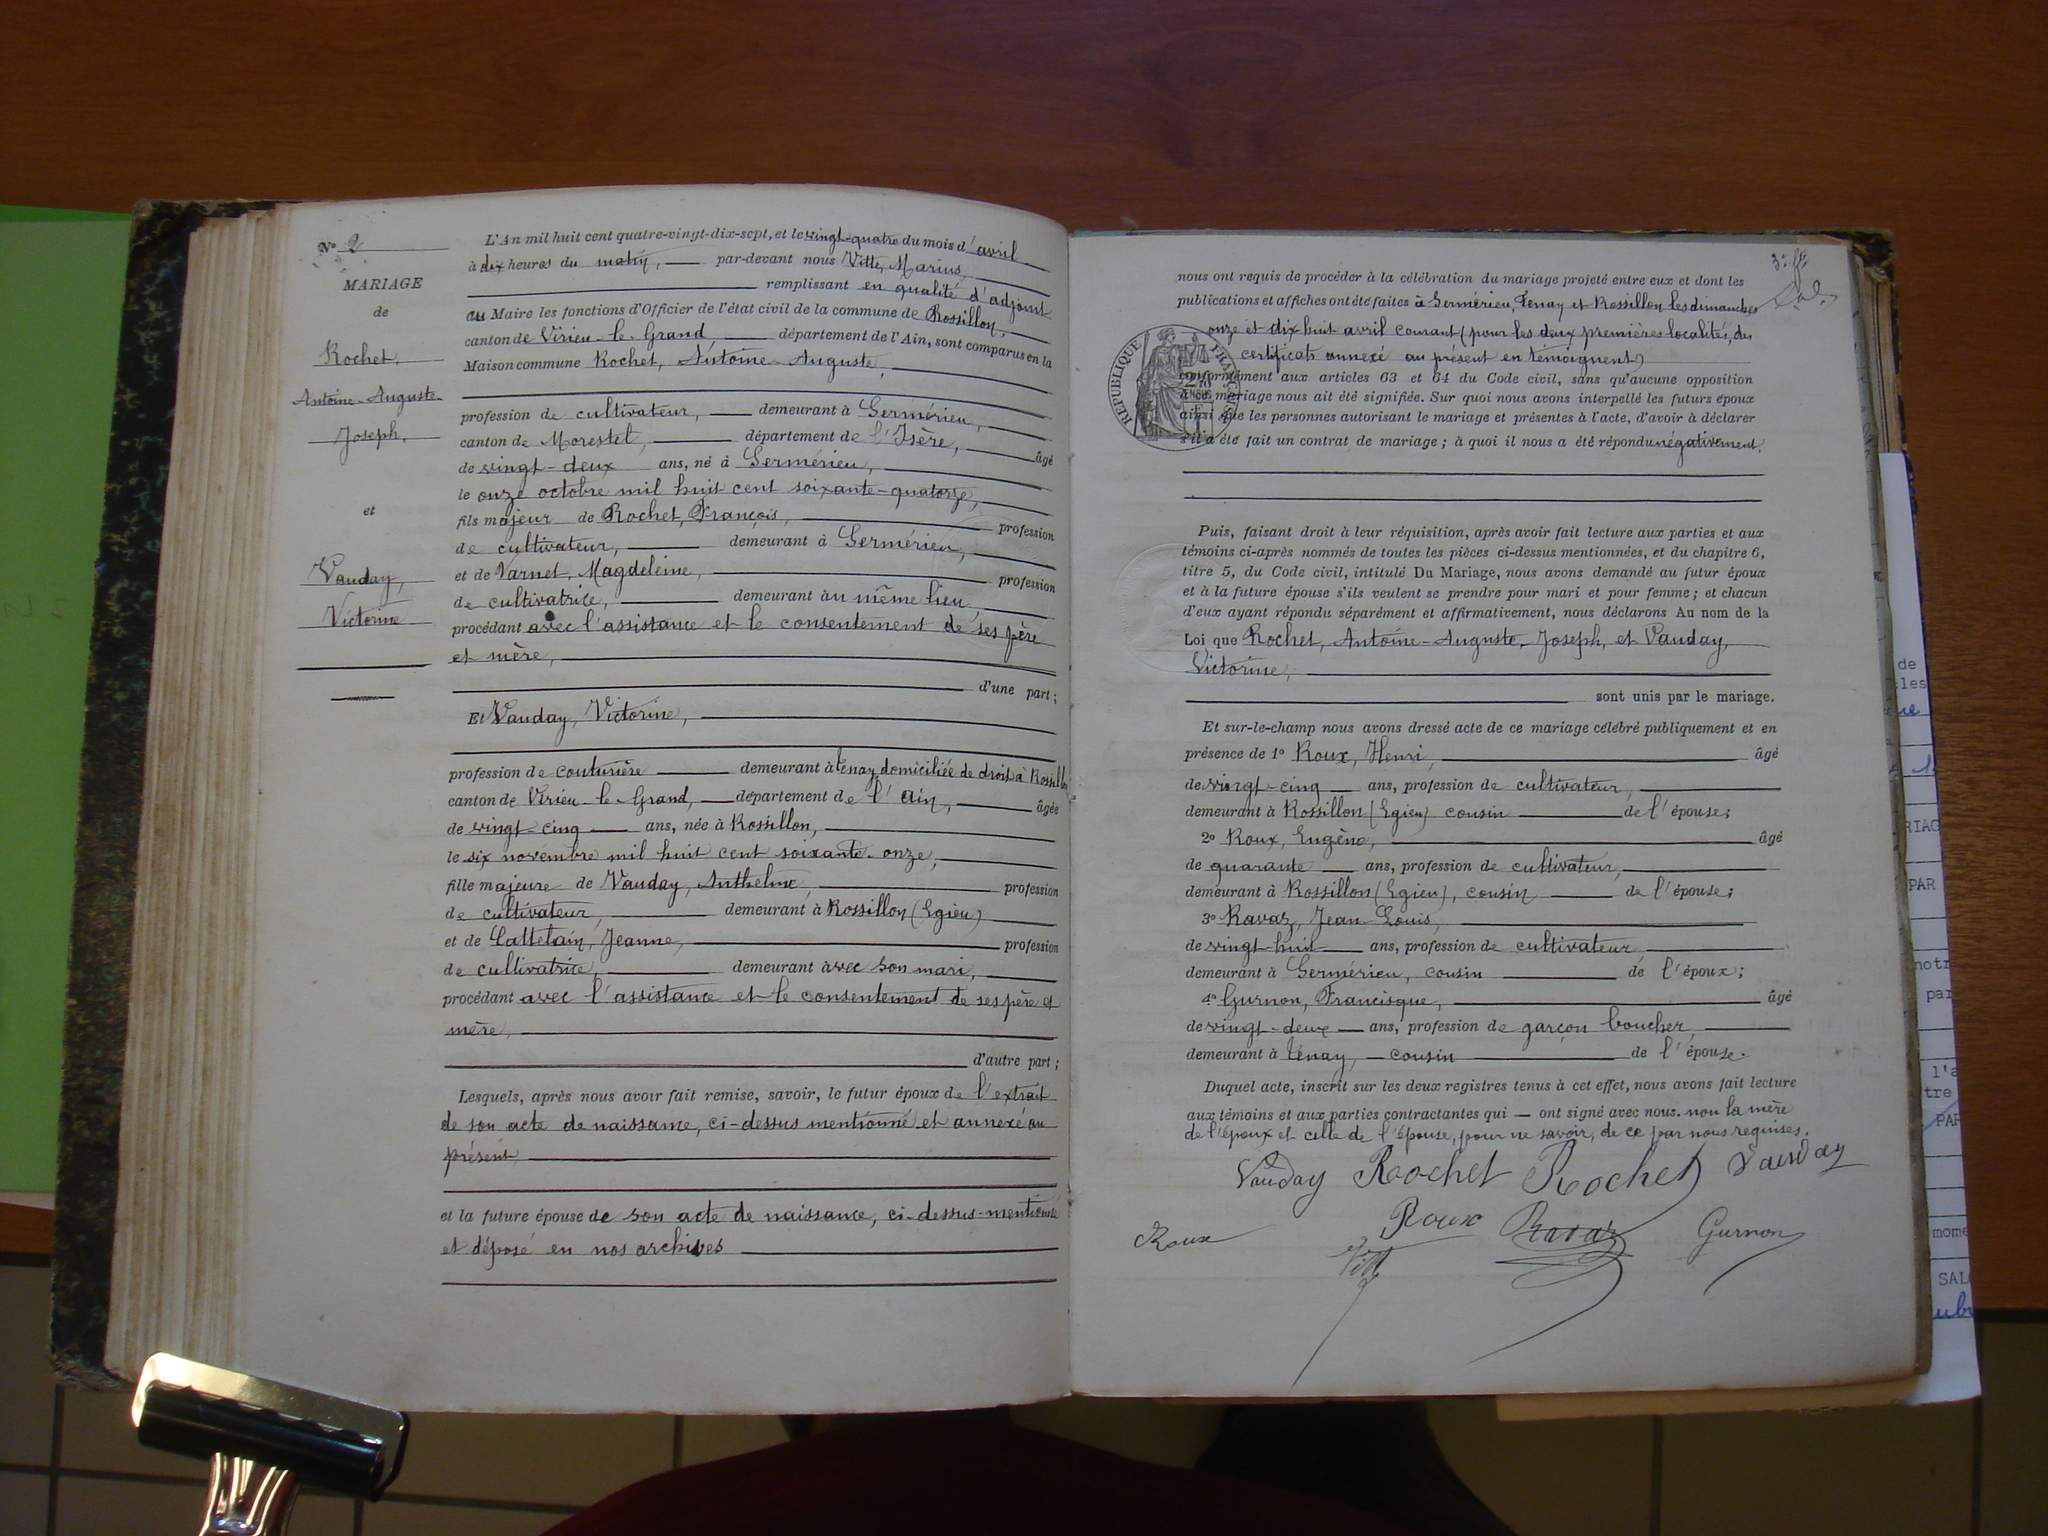 N° 2
MARIAGE
de
Rochet,
Antoine-Auguste-
Joseph,
et
Vauday,
Victorine
L'An mil huit cent quatre-vingt-dix-sept, et le vingt-quatre du mois d'avril
à dix heures du matin, par-devant nous Vitte, Marius,
remplissant en qualité d'adjoint
au Maire les fonctions d'Officier de l'état civil de la commune de Rossillon,
canton de Virieu-le-Grand, département de l'Ain, sont comparus en la
Maison commune Rochet, Antoine-Auguste,
profession de cultivateur, demeurant à Sermérieu,
canton de Morestel, département de l'Isère, âgé
de vingt-deux ans, né à Sermérieu,
le onze octobre mil huit cent soixante-quatorze,
fils majeur de Rochet, François, profession
de cultivateur, demeurant à Sermérieu,
et de Varnet, Magdeleine, profession
de cultivatrice, demeurant au même lieu
procédant avec l'assistance et le consentement de ses père
et mère,
d'une part;
Et Vauday, Victorine,
profession de couturière demeurant à Tenay, domiciliée de droit à Rossillon
canton de Virieu-le-Grand, département de l'Ain, âgée
de vingt-cinq ans, née à Rossillon,
le six novembre mil huit cent soixante-onze,
fille majeure de Vauday, Anthelme, profession
de cultivateur, demeurant à Rossillon (Egieu)
et de Lattetain, Jeanne, profession
de cultivatrice, demeurant avec son mari,
procédant avec l'assistance et le consentement de ses père et
mère,
d'autre part;
Lesquels, après nous avoir fait remise, savoir, le futur époux de l'extrait
de son acte de naissance, ci-dessus mentionné et annexé au
présent
et la future épouse de son acte de naissance, ci-dessus-mentionné
et déposé en nos archives
nous ont requis de procéder à la célébration du mariage projeté entre eux et dont les
publications et affiches ont été faites à Sermérieu, Tenay et Rossillon les dimanches
onze et dix huit avril courant (pour les deux premières localités, des
certificats annexé au présent en témoignent)
conformément aux articles 63 et 64 du Code civil, sans qu'aucune opposition
à ce mariage nous ait été signifiée. Sur quoi nous avons interpellé les futurs époux
ainsi que les personnes autorisant le mariage et présentes à l'acte, d'avoir à déclarer
s'il a été fait un contrat de mariage; à quoi il nous a été répondu négativement.
RÉPUBLIQUE FRANÇAISE
Puis, faisant droit à leur réquisition, après avoir fait lecture aux parties et aux
témoins ci-après nommés de toutes les pièces ci-dessus mentionnées, et du chapitre 6,
titre 5, du Code civil, intitulé Du Mariage, nous avons demandé au futur époux
et à la future épouse s'ils veulent se prendre pour mari et pour femme; et chacun
d'eux ayant répondu séparément et affirmativement, nous déclarons Au nom de la
Loi que Rochet, Antoine-Auguste-Joseph, et Vauday,
Victorine,
sont unis par le mariage.
Et sur-le-champ nous avons dressé acte de ce mariage célébré publiquement et en
présence de 1° Roux, Henri, âgé
de vingt-cinq ans, profession de cultivateur,
demeurant à Rossillon (Egieu) cousin de l'épouse;
2° Roux, Eugène, âgé
de quarante ans, profession de cultivateur,
demeurant à Rossillon (Egieu), cousin de l'épouse;
3° Ravaz, Jean-Louis,
de vingt-huit ans, profession de cultivateur
demeurant à Sermérieu, cousin de l'époux;
4° Gurnon, Francisque, âgé
de vingt-deux ans, profession de garçon boucher,
demeurant à Tenay, cousin de l'épouse.
Duquel acte, inscrit sur les deux registres tenus à cet effet, nous avons fait lecture
aux témoins et aux parties contractantes qui — ont signé avec nous. non la mère
de l'époux et celle de l'épouse, pour ne savoir, de ce par nous requises.
Vauday Rochet Rochet Vauday
Roux Roux Ravaz Gurnon
Vitte